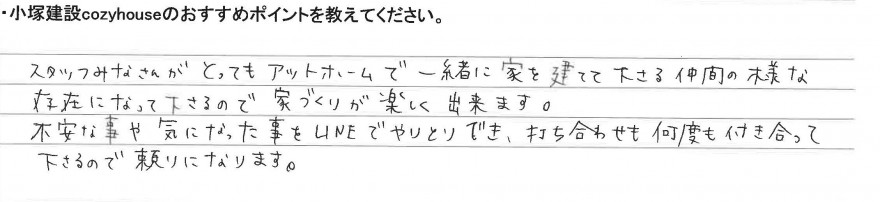 ・小塚建設cozyhouseのおすすめポイントを教えてください。
スタッフみなさんが とっても アットホームで 一緒に 家を 建てて 下さる 仲間の 様な
存在になって下さるので 家づくりが 楽しく 出来ます。
不安な事や 気になった事をLINEでやりとりでき、打ち合わせも 何度も付き合って
下さるので 頼りになります。